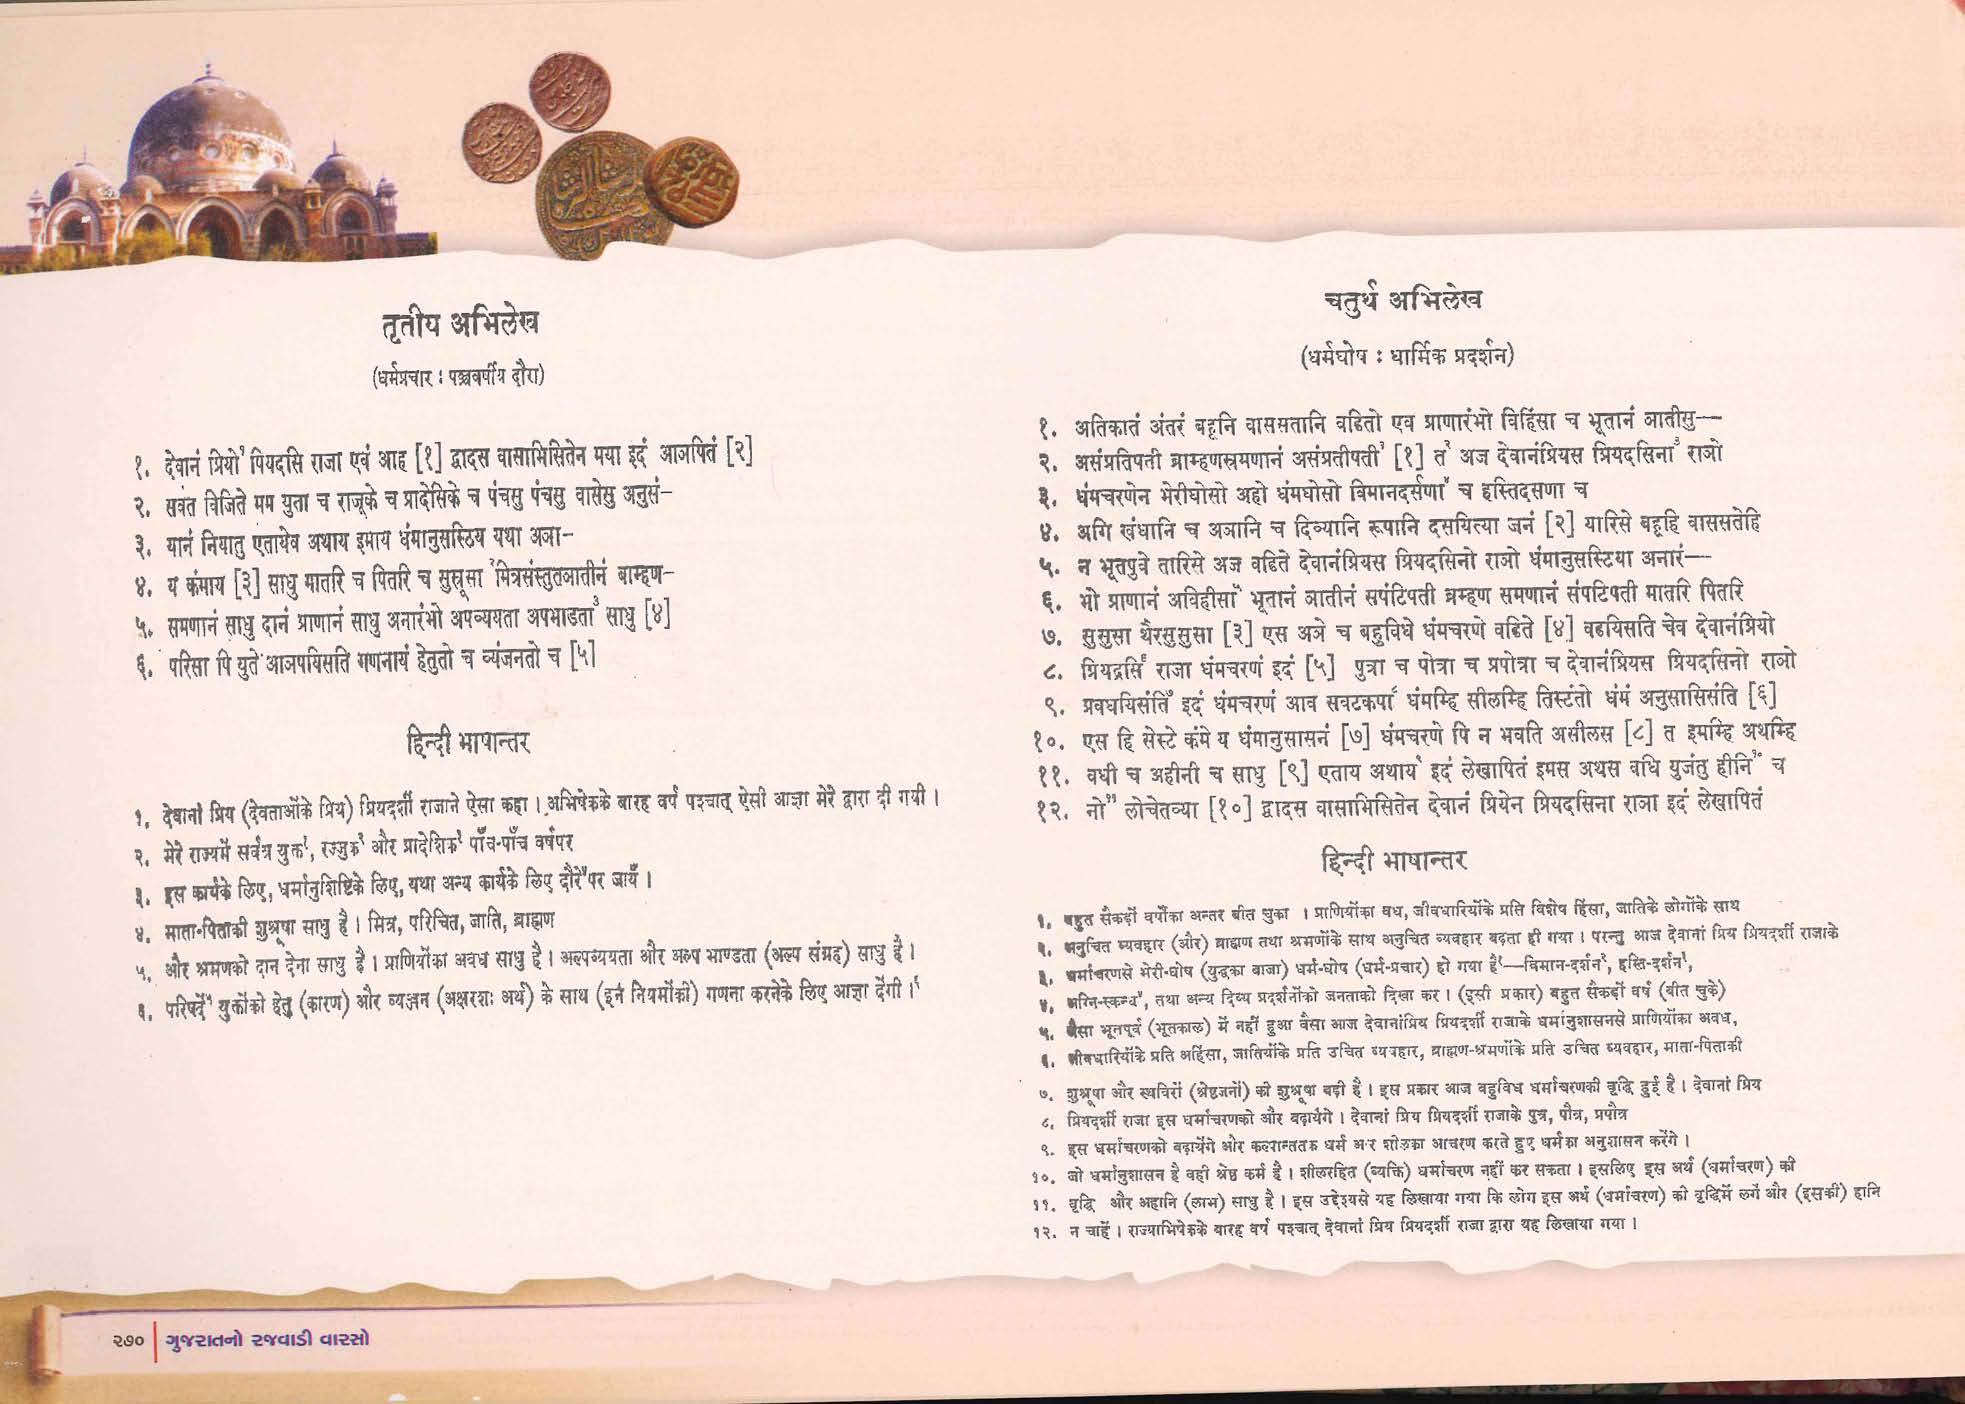 तृतीय अभिलेख
(धर्मप्रचार : पञ्चवर्षीय दौरा)
१. देवानं प्रियो१ पियदसि राजा एवं आह [१] द्वादस वासाभिसितेन मया इदं आञपितं [२]
२. सवत विजिते मम युता च राजूके च प्रादेसिके च पंचसु पंचसु वासेसु अनुसं–
३. यानं नियातु एतायेव अथाय इमाय धंमानुसस्टिय यथा अञा–
४. य कंमाय [३] साधु मातरि च पितरि च सुस्रूसा २मित्रसंस्तुतञातीनं बाम्हण–
५. समणानं साधु दानं प्राणानं साधु अनारंभो अपव्ययता अपभाडता३ साधु [४]
६. परिसा पि युते आञपयिसति गणनायं हेतुतो च व्यंजनतो च [५]
हिन्दी भाषान्तर
१. देवानां प्रिय (देवताओंके प्रिय) प्रियदर्शी राजाने ऐसा कहा । अभिषेकके बारह वर्ष पश्चात् ऐसी आज्ञा मेरे द्वारा दी गयी ।
२. मेरे राज्यमें सर्वत्र युक्त, रज्जुक और प्रादेशिक पाँच-पाँच वर्षपर
३. इस कार्यके लिए, धर्मानुशिष्टिके लिए, यथा अन्य कार्यके लिए दौरे पर जायँ ।
४. माता-पिताकी शुश्रूषा साधु है । मित्र, परिचित, जाति, ब्राह्मण
५. और श्रमणको दान देना साधु है । प्राणियोंका अवध साधु है । अल्पव्ययता और अल्प भाण्डता (अल्प संग्रह) साधु है ।
६. परिषदें युक्तोंको हेतु (कारण) और व्यञ्जन (अक्षरशः अर्थ) के साथ (इन नियमोंकी) गणना करनेके लिए आज्ञा देंगी ।
चतुर्थ अभिलेख
(धर्मघोष : धार्मिक प्रदर्शन)
१. अतिकातं अंतरं बहूनि वाससतानि वढितो एव प्राणारंभो विहिंसा च भूतानं ञातीसु—
२. असंप्रतिपती ब्राम्हणस्रमणानं असंप्रतीपती [१] त अज देवानंप्रियस प्रियदसिना राञो
३. धंमचरणेन भेरीघोसो अहो धंमघोसो विमानदर्सणा च हस्तिदसणा च
४. अगि खंधानि च अञानि च दिव्यानि रूपानि दसयित्या जनं [२] यारिसे बहूहि वाससतेहि
५. न भूतपुवे तारिसे अज वढिते देवानंप्रियस प्रियदसिनो राञो धंमानुसस्टिया अनारं—
६. भो प्राणानं अविहीसा भूतानं ञातीनं संपटिपती ब्रम्हण समणानं संपटिपती मातरि पितरि
७. सुसुसा थैरसुसुसा [३] एस अञे च बहुविधे धंमचरणे वढिते [४] वढयिसति चेव देवानंप्रियो
८. प्रियद्रसि राजा धंमचरणं इदं [५] पुत्रा च पोत्रा च प्रपोत्रा च देवानंप्रियस प्रियदसिनो राञो
९. प्रवधयिसंति इदं धंमचरणं आव सवटकपा धंमम्हि सीलम्हि तिस्टंतो धंमं अनुसासिसंति [६]
१०. एस हि सेस्टे कंमे य धंमानुसासनं [७] धंमचरणे पि न भवति असीलस [८] त इमम्हि अथम्हि
११. वधी च अहीनी च साधु [९] एताय अथाय इदं लेखापितं इमस अथस वधि युजंतु हीनि च
१२. नो लोचेतव्या [१०] द्वादस वासाभिसितेन देवानं प्रियेन प्रियदसिना राञा इदं लेखापितं
हिन्दी भाषान्तर
१. बहुत सैकड़ों वर्षोंका अन्तर बीत चुका । प्राणियोंका वध, जीवधारियोंके प्रति विशेष हिंसा, जातिके लोगोंके साथ
२. अनुचित व्यवहार (और) ब्राह्मण तथा श्रमणोंके साथ अनुचित व्यवहार बढ़ता ही गया । परन्तु आज देवानां प्रिय प्रियदर्शी राजाके
३. धर्माचरणसे भेरी-घोष (युद्धका बाजा) धर्म-घोष (धर्म-प्रचार) हो गया है—विमान-दर्शन, हस्ति-दर्शन,
४. अग्नि-स्कन्ध, तथा अन्य दिव्य प्रदर्शनोंको जनताको दिखा कर । (इसी प्रकार) बहुत सैकड़ों वर्ष (बीत चुके)
५. जैसा भूतपूर्व (भूतकाल) में नहीं हुआ वैसा आज देवानांप्रिय प्रियदर्शी राजाके धर्मानुशासनसे प्राणियोंका अवध,
६. जीवधारियोंके प्रति अहिंसा, जातियोंके प्रति उचित व्यवहार, ब्राह्मण-श्रमणोंके प्रति उचित व्यवहार, माता-पिताकी
७. शुश्रूषा और स्थविरों (श्रेष्ठजनों) की शुश्रूषा बढ़ी है । इस प्रकार आज बहुविध धर्माचरणकी वृद्धि हुई है । देवानां प्रिय
८. प्रियदर्शी राजा इस धर्माचरणको और बढ़ायेंगे । देवानां प्रिय प्रियदर्शी राजाके पुत्र, पौत्र, प्रपौत्र
९. इस धर्माचरणको बढ़ायेंगे और कल्पान्ततक धर्म और शीलका आचरण करते हुए धर्मका अनुशासन करेंगे ।
१०. जो धर्मानुशासन है वही श्रेष्ठ कर्म है । शीलरहित (व्यक्ति) धर्माचरण नहीं कर सकता । इसलिए इस अर्थ (धर्माचरण) की
११. वृद्धि और अहानि (लाभ) साधु है । इस उद्देश्यसे यह लिखाया गया कि लोग इस अर्थ (धर्माचरण) की वृद्धिमें लगें और (इसकी) हानि
१२. न चाहें । राज्याभिषेकके बारह वर्ष पश्चात् देवानां प्रिय प्रियदर्शी राजा द्वारा यह लिखाया गया ।
૨૭૦ ગુજરાતનો રજવાડી વારસો